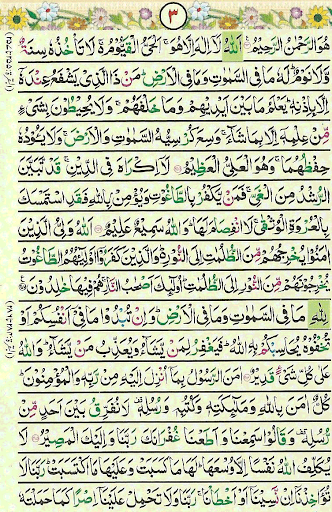 ٣
هُوَ الرَّحْمٰنُ الرَّحِيْمُ ۝ اَللّٰهُ لَآ اِلٰهَ اِلَّا هُوَ ۚ اَلْحَيُّ الْقَيُّوْمُ ۚ لَا تَاْخُذُهٗ سِنَةٌ
وَّلَا نَوْمٌ ؕ لَهٗ مَا فِي السَّمٰوٰتِ وَمَا فِي الْاَرْضِ ؕ مَنْ ذَا الَّذِيْ يَشْفَعُ عِنْدَهٗٓ
اِلَّا بِاِذْنِهٖ ؕ يَعْلَمُ مَا بَيْنَ اَيْدِيْهِمْ وَمَا خَلْفَهُمْ ۚ وَلَا يُحِيْطُوْنَ بِشَيْءٍ
مِّنْ عِلْمِهٖٓ اِلَّا بِمَا شَآءَ ۚ وَسِعَ كُرْسِيُّهُ السَّمٰوٰتِ وَالْاَرْضَ ۚ وَلَا يَـُٔوْدُهٗ
حِفْظُهُمَا ۚ وَهُوَ الْعَلِيُّ الْعَظِيْمُ ۝ لَآ اِكْرَاهَ فِي الدِّيْنِ ۙ قَدْ تَّبَيَّنَ
الرُّشْدُ مِنَ الْغَيِّ ۚ فَمَنْ يَّكْفُرْ بِالطَّاغُوْتِ وَيُؤْمِنْۢ بِاللّٰهِ فَقَدِ اسْتَمْسَكَ
بِالْعُرْوَةِ الْوُثْقٰى ۗ لَا انْفِصَامَ لَهَا ؕ وَاللّٰهُ سَمِيْعٌ عَلِيْمٌ ۝ اَللّٰهُ وَلِيُّ الَّذِيْنَ
اٰمَنُوْا ۙ يُخْرِجُهُمْ مِّنَ الظُّلُمٰتِ اِلَى النُّوْرِ ؕ وَالَّذِيْنَ كَفَرُوْٓا اَوْلِيٰٓـُٔهُمُ الطَّاغُوْتُ ۙ
يُخْرِجُوْنَهُمْ مِّنَ النُّوْرِ اِلَى الظُّلُمٰتِ ؕ اُولٰٓئِكَ اَصْحٰبُ النَّارِ ۚ هُمْ فِيْهَا خٰلِدُوْنَ ۝
لِلّٰهِ مَا فِي السَّمٰوٰتِ وَمَا فِي الْاَرْضِ ؕ وَاِنْ تُبْدُوْا مَا فِيْٓ اَنْفُسِكُمْ اَوْ
تُخْفُوْهُ يُحَاسِبْكُمْ بِهِ اللّٰهُ ؕ فَيَغْفِرُ لِمَنْ يَّشَآءُ وَيُعَذِّبُ مَنْ يَّشَآءُ ؕ وَاللّٰهُ
عَلٰى كُلِّ شَيْءٍ قَدِيْرٌ ۝ اٰمَنَ الرَّسُوْلُ بِمَآ اُنْزِلَ اِلَيْهِ مِنْ رَّبِّهٖ وَالْمُؤْمِنُوْنَ ؕ
كُلٌّ اٰمَنَ بِاللّٰهِ وَمَلٰٓئِكَتِهٖ وَكُتُبِهٖ وَرُسُلِهٖ ۟ لَا نُفَرِّقُ بَيْنَ اَحَدٍ مِّنْ
رُّسُلِهٖ ۟ وَقَالُوْا سَمِعْنَا وَاَطَعْنَا ۗ غُفْرَانَكَ رَبَّنَا وَاِلَيْكَ الْمَصِيْرُ ۝ لَا
يُكَلِّفُ اللّٰهُ نَفْسًا اِلَّا وُسْعَهَا ؕ لَهَا مَا كَسَبَتْ وَعَلَيْهَا مَا اكْتَسَبَتْ ؕ رَبَّنَا لَا
تُؤَاخِذْنَآ اِنْ نَّسِيْنَآ اَوْ اَخْطَاْنَا ۚ رَبَّنَا وَلَا تَحْمِلْ عَلَيْنَآ اِصْرًا كَمَا حَمَلْتَهٗ